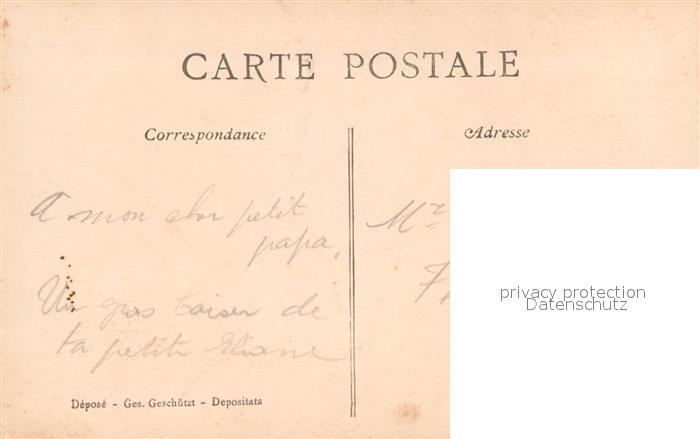 CARTE POSTALE
Correspondance
Adresse
A mon cher petit
papa,
Un gros baiser de
ta petite Eliane
Mr
privacy protection
Datenschutz
Déposé - Ges. Geschützt - Depositata